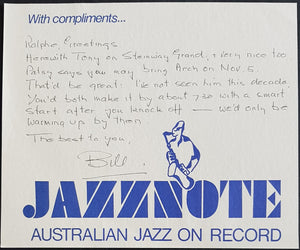 With compliments...
Ralphe, Greetings
Herewith Tony on Steinway Grand, & very nice too
Patsy says you may bring Arch on Nov. 5.
That'd be great: I've not seen him this decade.
You'd both make it by about 7.30 with a smart
start after you knock off — we'd only be
warming up by then.
The best to you,
Bill.
JAZZNOTE
AUSTRALIAN JAZZ ON RECORD